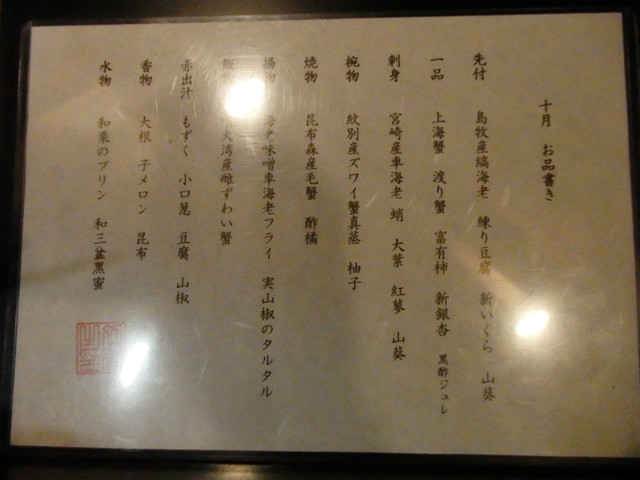 十月 お品書き
先付 島牧産縞海老 練り豆腐 新いくら 山葵
一品 上海蟹 渡り蟹 富有柿 新銀杏 黒酢ジュレ
刺身 宮崎産車海老 蛸 大葉 紅蓼 山葵
椀物 紋別産ズワイ蟹真蒸 柚子
焼物 昆布森産毛蟹 酢橘
揚物 海老味噌車海老フライ 実山椒のタルタル
火湾産雌ずわい蟹
赤出汁 もずく 小口葱 豆腐 山椒
香物 大根 子メロン 昆布
水物 和栗のプリン 和三盆黒蜜